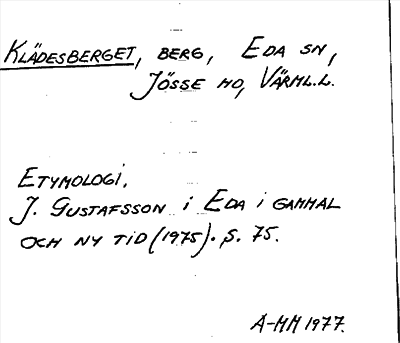 KLÄDESBERGET, BERG, EDA SN,
JÖSSE HD, VÄRML.L.
ETYMOLOGI.
J. GUSTAFSSON i EDA i GAMMAL
OCH NY TID (1975). S. 75.
A-MM 1977.